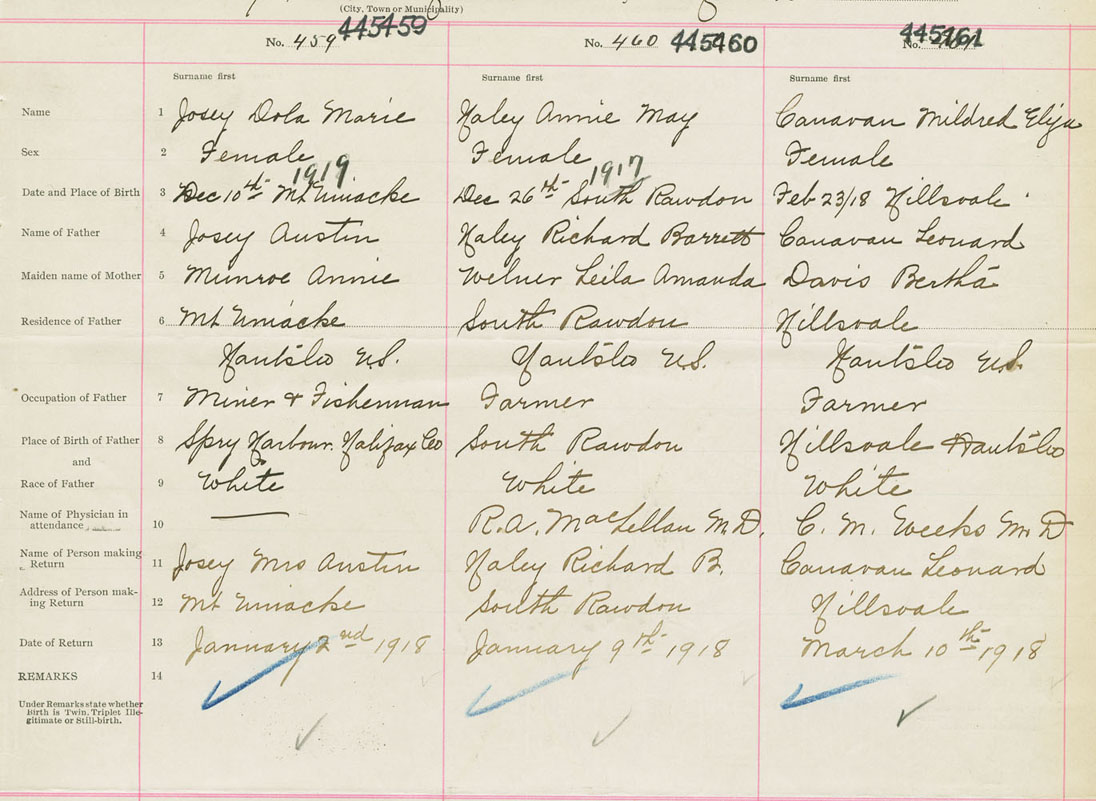 (City, Town or Municipality)
No. 459 445459 No. 460 445460 No. 445461
Surname first Surname first Surname first
Name 1 Josey Dola Marie Haley Annie May Canavan Mildred Eliza
Sex 2 Female Female Female
1919 1917
Date and Place of Birth 3 Dec 10th Mt Uniacke Dec 26th South Rawdon Feb 23/18 Hillsvale
Name of Father 4 Josey Austin Haley Richard Barrett Canavan Leonard
Maiden name of Mother 5 Munroe Annie Leila Amanda Davis Bertha
Residence of Father 6 Mt Uniacke South Rawdon Hillsvale
Hants Co N.S. Hants Co N.S. Hants Co N.S.
Occupation of Father 7 Miner & Fisherman Farmer Farmer
Place of Birth of Father 8 Spry Harbour. Halifax Co South Rawdon Hillsvale Hants Co
and
Race of Father 9 White White White
Name of Physician in
attendance 10 R.A. MacLellan M.D. C. M. Weeks M. D
Name of Person making
Return 11 Josey Mrs Austin Haley Richard B. Canavan Leonard
Address of Person mak-
ing Return 12 Mt Uniacke South Rawdon Hillsvale
Date of Return 13 January 2nd 1918 January 9th 1918 March 10th 1918
REMARKS 14
Under Remarks state whether
Birth is Twin, Triplet Ille-
gitimate or Still-birth.